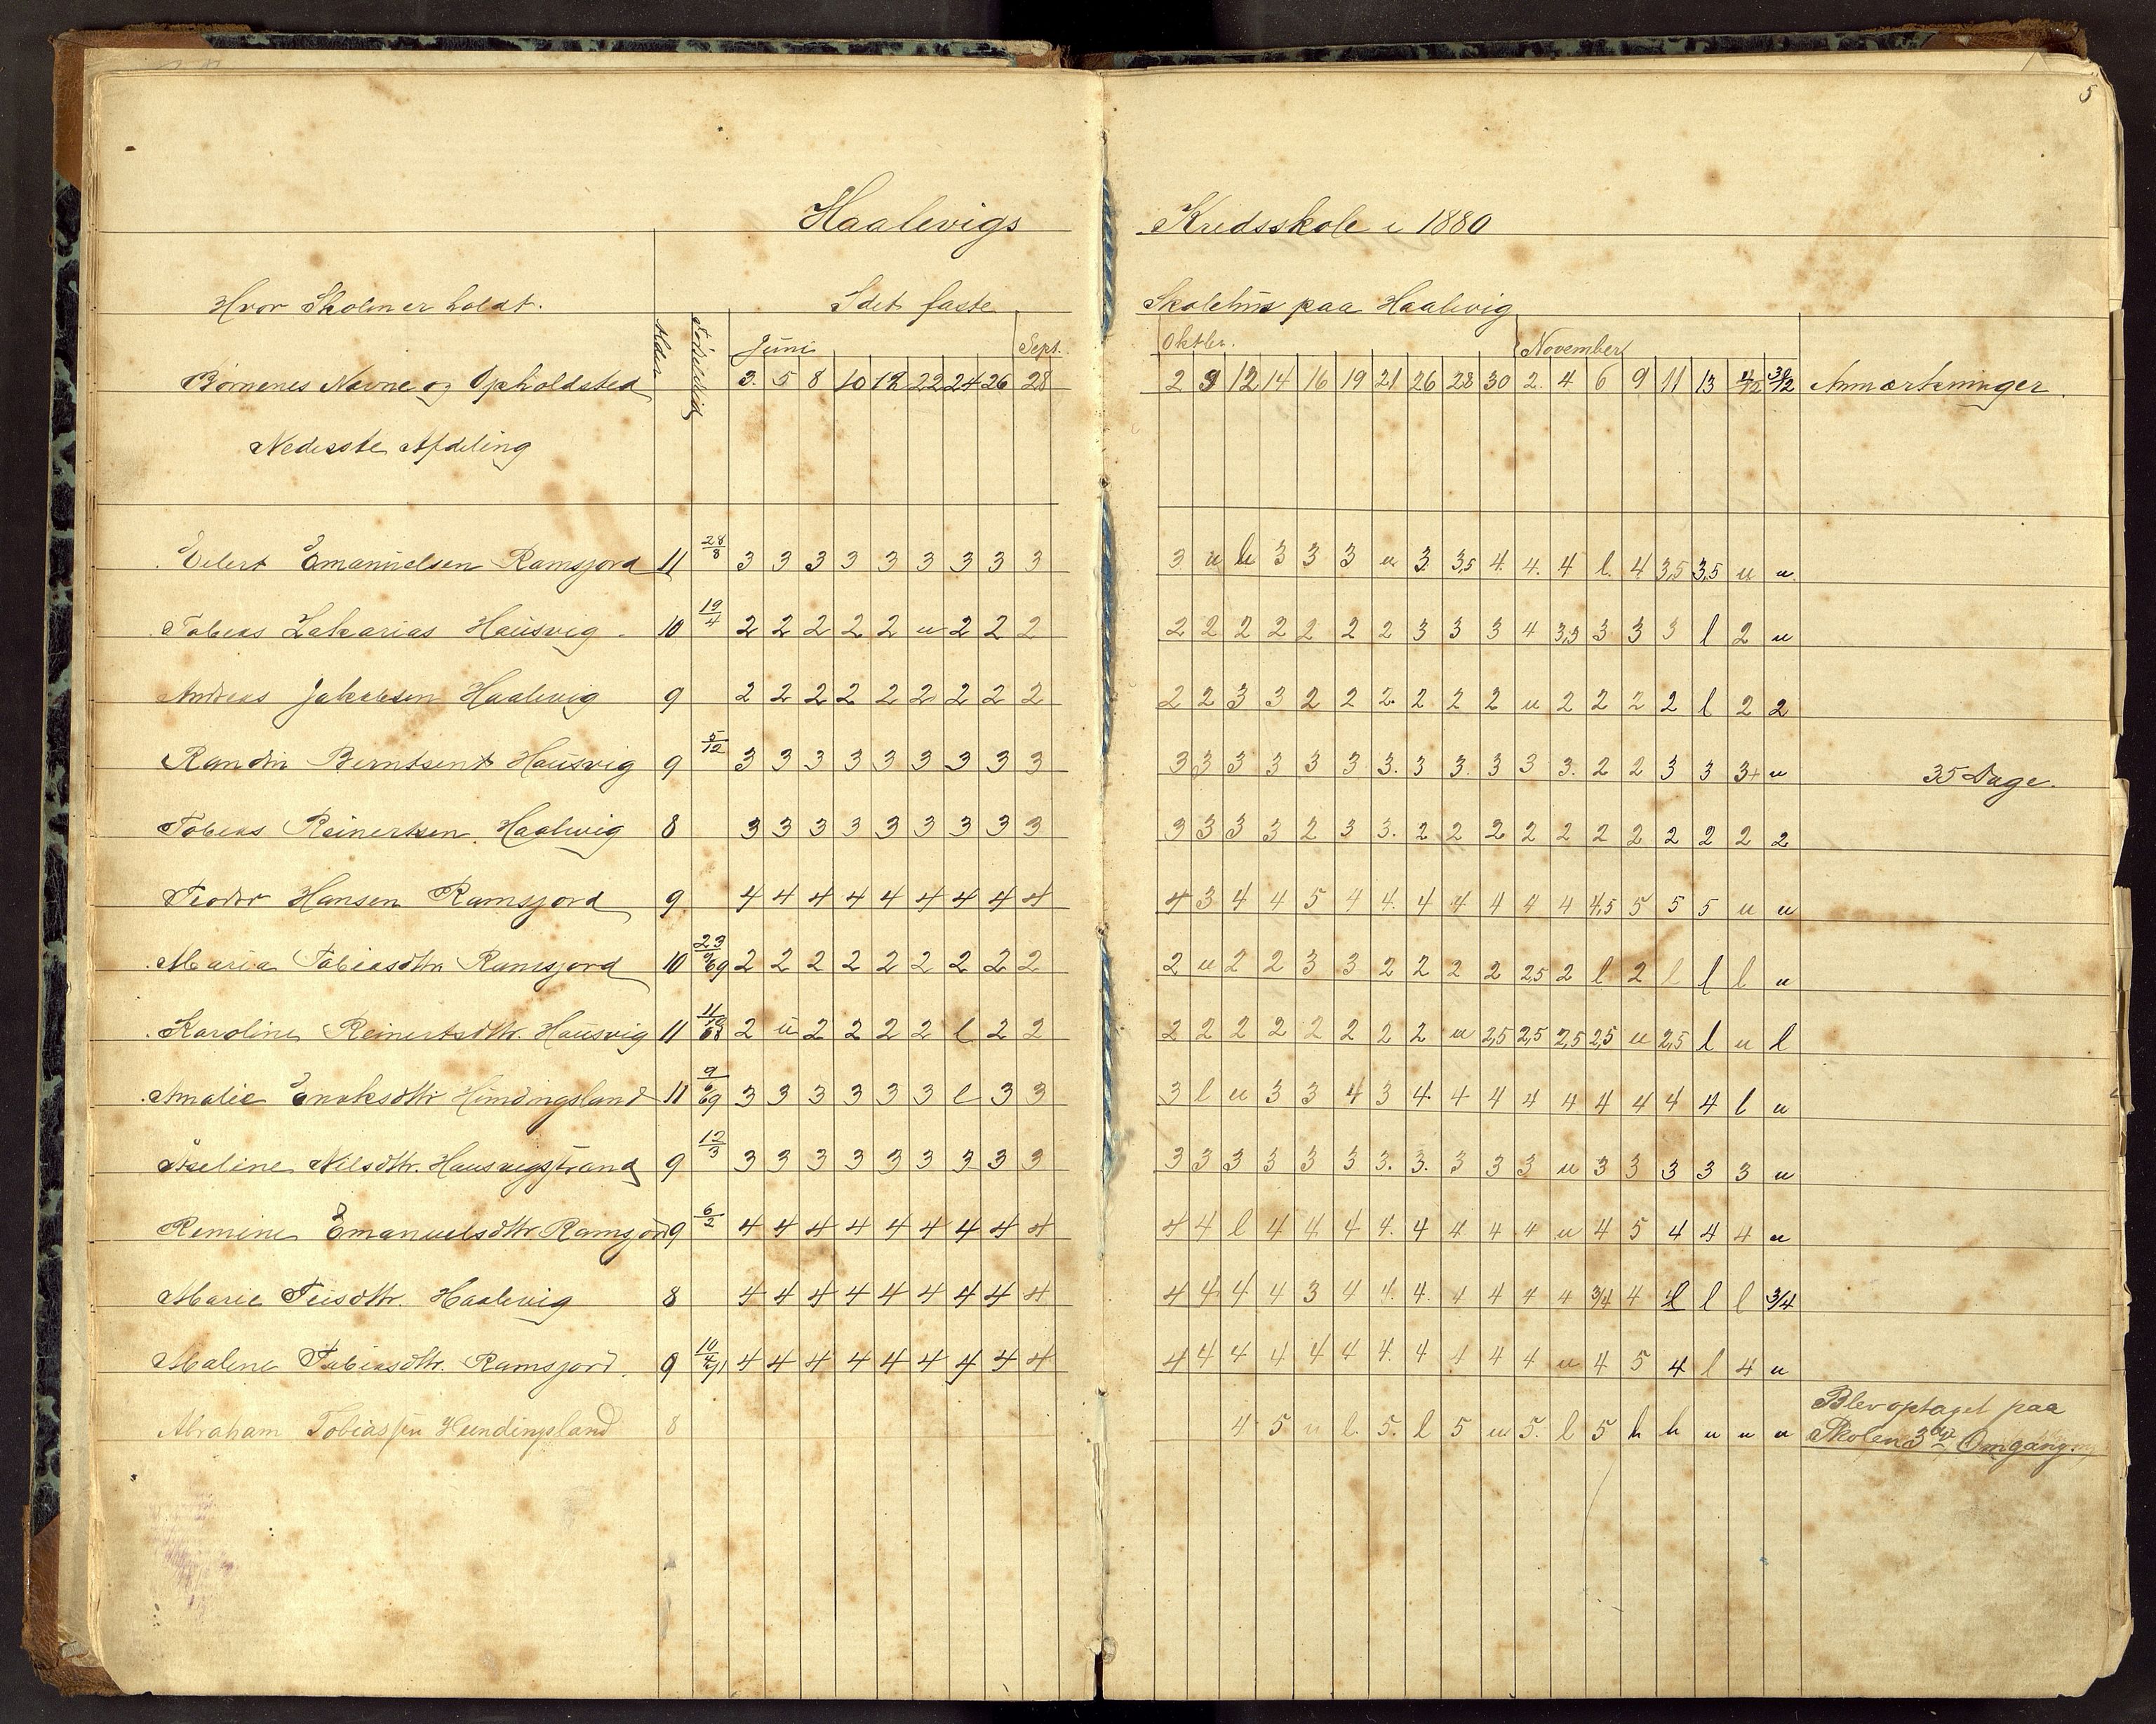 5
Haalevigs Kredsskole i 1880
Hvor Skolen er holdt. I det faste Skolehus paa Haalevig
Alder Fødselsdag Juni Sept. Oktbr. November
Børnenes Navne og Opholdsted 3. 5 8 10 12 22 24 26 28 2 9 12 14 16 19 21 26 28 30 2. 4 6 9 11 13 11/12 30/12 Anmærkninger.
Nederste Afdeling
Eilert Emanuelsen Ramsjord 11 28/8 3 3 3 3 3 3 3 3 3 3 u h 3 3 3 u 3 3,5 4. 4. 4 l. 4 3,5 3,5 u u
Tobias Zakarias Hausvig. 10 19/4 2 2 2 2 2 u 2 2 2 2 2 2 2 2 2 2 3 3 3 4 3,3 3 3 3 l 2 u
Andreas Jakobsen Haalevig 9 2 2 2 2 2 2 2 2 2 2 2 3 3 2 2 2. 2 2 2 u 2 2 2 2 l 2 2
Berntsen Hausvig 9 5/12 3 3 3 3 3 3 3 3 3 3 3 3 3 3 3 3. 3 3. 3 3 3. 2 2 3 3 3+ u 35 Dage.
Tobias Reinertsen Haalevig 8 3 3 3 3 3 3 3 3 3 3 3 3 3 2 3 3. 2 2 2 2 2 2 2 2 2 2 2
Teodor Hansen Ramsjord 9 4 4 4 4 4 4 4 4 4 4 3 4 4 5 4 4. 4 4 4 4 4 4,5 5 5 5 u u
Maria Tobiasdtr. Ramsjord 10 23/9 69 2 2 2 2 2 2 2 2 2 2 u 2 2 3 3 2 2 2 2 2,5 2 l. 2 l l l u
Karoline Reinertsdtr. Hausvig 11 11/10 68 2 u 2 2 2 2 l 2 2 2 2 2 2 2 2 2 2 u 2,5 2,5 2,5 2,5 u 2,5 l u l
Amalie Enoksdtr Hundingsland 11 9/6 69 3 3 3 3 3 3 l 3 3 3 l u 3 3 4 3 4. 4 4 4 4 4 4 4 4 l u
Aseline Nilsdtr. Hausvigstrand 9 12/3 3 3 3 3 3 3 3 3 3 3 3 3 3 3 3 3. 3. 3 3 3 u 3 3 3 3 3 u
Remine Emanuelsdtr Ramsjord 9 6/2 4 4 4 4 4 4 4 4 4 4 4 l 4 4 4 4. 4 4 4 4 u 4 5 4 4 4 u
Marie Teisdtr. Haalevig 8 4 4 4 4 4 4 4 4 4 4 4 4 4 3 4 4. 4. 4 4 4 4 3/4 4 l l l 3/4
Malene Tobiasdtr. Ramsjord. 9 10/4 71 4 4 4 4 4 4 4 4 4 4 4 4 4 4 4 4. 4 4 4 4 u 4 5 4 l 4 u
Abraham Tobiassen Hundingsland 8 4 5 u l. 5. l 5 u 5. l 5 h h u u u Blev optaget paa
Skolen 3die Omgang.